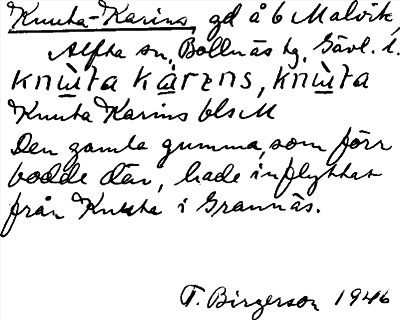 Knuta-Karins, gd å 6 Malvik,
Alfta sn, Bollnäs tg, Gävl. l.
knɯ̀ta kārɛns, knɯ̀ta
Knuta Karins bls M
Den gamla gumma, som förr
bodde där, hade inflyttat
från Knuta i Grannäs.
T. Birgerson 1946